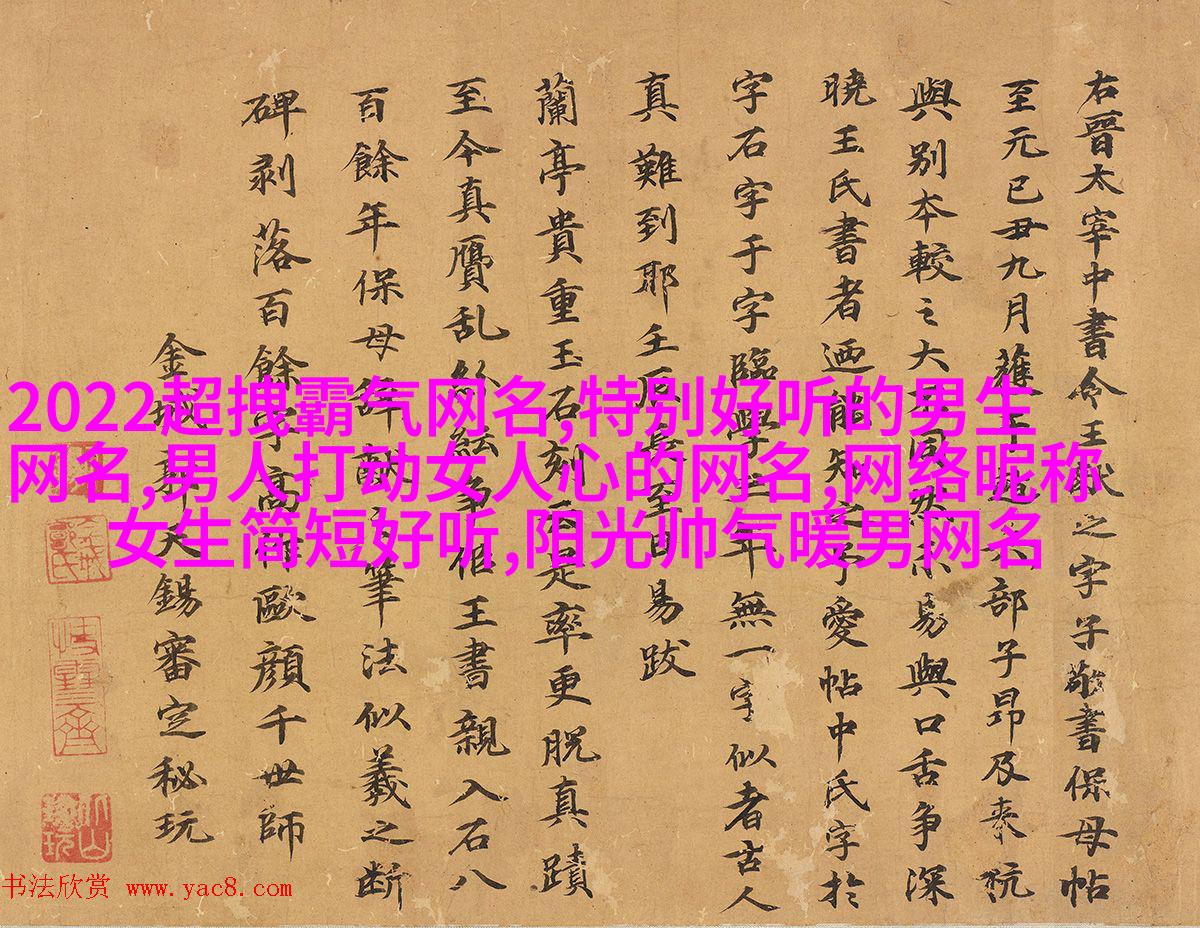 右晉太宰中書令王獻之字子敬書保母帖
至元己丑九月獲于部子昂及來杭
與別本較之大同然亦易與口舌爭深
曉王氏書者迺能知之予愛帖中氏字於
字石字于字臨學三年無一字似者古人
真難到耶壬辰長至日易跋
蘭亭貴重玉石刻云是率更脫真蹟
至今真贋乱紛紜爭似王書親入石八
百餘年保母辞獻之筆法似羲之斷
碑剥落百餘字高歐顏千世師
金城郭天錫審定秘玩
2022超拽霸气网名,特别好听的男生
网名,男人打动女人心的网名,网络昵称
女生简短好听,阳光帅气暖男网名
书法欣赏 www.yac8.com